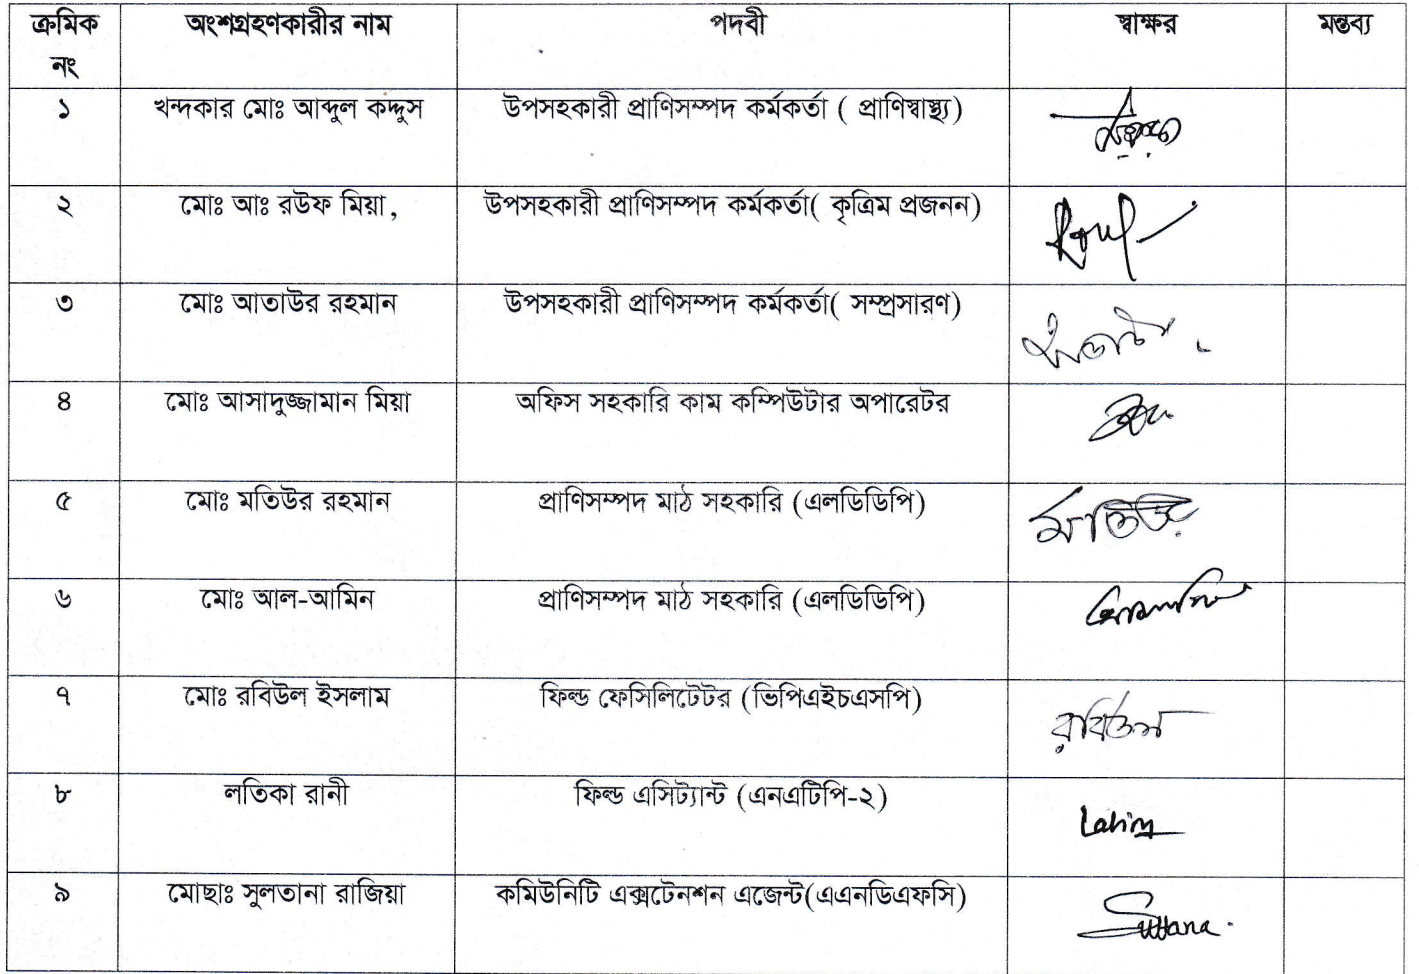 ক্রমিক নং অংশগ্রহণকারীর নাম পদবী স্বাক্ষর মন্তব্য
১ খন্দকার মোঃ আব্দুল কদ্দুস উপসহকারী প্রাণিসম্পদ কর্মকর্তা ( প্রাণিস্বাস্থ্য)
২ মোঃ আঃ রউফ মিয়া, উপসহকারী প্রাণিসম্পদ কর্মকর্তা( কৃত্রিম প্রজনন) Rouf
৩ মোঃ আতাউর রহমান উপসহকারী প্রাণিসম্পদ কর্মকর্তা( সম্প্রসারণ)
৪ মোঃ আসাদুজ্জামান মিয়া অফিস সহকারি কাম কম্পিউটার অপারেটর
৫ মোঃ মতিউর রহমান প্রাণিসম্পদ মাঠ সহকারি (এলডিডিপি) মতিউর
৬ মোঃ আল-আমিন প্রাণিসম্পদ মাঠ সহকারি (এলডিডিপি)
৭ মোঃ রবিউল ইসলাম ফিল্ড ফেসিলিটেটর (ভিপিএইচএসপি) রবিউল
৮ লতিকা রানী ফিল্ড এসিট্যান্ট (এনএটিপি-২)
৯ মোছাঃ সুলতানা রাজিয়া কমিউনিটি এক্সটেনশন এজেন্ট(এএনডিএফসি) Sultana.